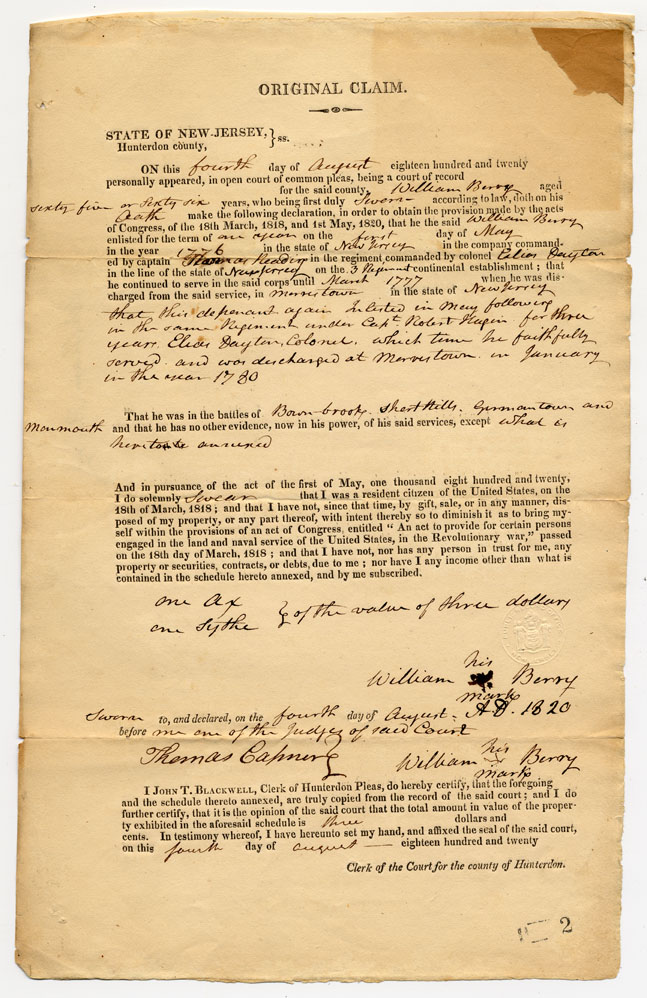 ORIGINAL CLAIM.
STATE OF NEW-JERSEY, } ss.
Hunterdon county,
ON this fourth day of August eighteen hundred and twenty
personally appeared, in open court of common pleas, being a court of record
for the said county, William Berry aged
sixty five or sixty six years, who being first duly Sworn according to law, doth on his
Oath make the following declaration, in order to obtain the provision made by the acts
of Congress, of the 18th March, 1818, and 1st May, 1820, that he the said William Berry
enlisted for the term of one year on the first day of May
in the year 1776 in the state of New Jersey in the company command-
ed by captain Thomas Reading in the regiment commanded by colonel Elias Dayton
in the line of the state of New Jersey on the 3 Regiment continental establishment; that
he continued to serve in the said corps until March 1777 when he was dis-
charged from the said service, in Morristown in the state of New Jersey
that this deponant again Inlisted in May following
in the same Regiment under Capt. Robert Hagin for three
years, Elias Dayton, Colonel, which time he faithfully
served and was discharged at Morristown in January
in the year 1780
That he was in the battles of Bown-brook. Short Hills. Germantown and
Monmouth and that he has no other evidence, now in his power, of his said services, except what is
hereto annexed
And in pursuance of the act of the first of May, one thousand eight hundred and twenty,
I do solemnly Swear that I was a resident citizen of the United States, on the
18th of March, 1818; and that I have not, since that time, by gift, sale, or in any manner, dis-
posed of my property, or any part thereof, with intent thereby so to diminish it as to bring my-
self within the provisions of an act of Congress, entitled "An act to provide for certain persons
engaged in the land and naval service of the United States, in the Revolutionary war," passed
on the 18th day of March, 1818; and that I have not, nor has any person in trust for me, any
property or securities, contracts, or debts, due to me; nor have I any income other than what is
contained in the schedule hereto annexed, and by me subscribed.
one Ax
one Sythe } of the value of three dollars
his
William Berry
mark
Sworn to, and declared, on the fourth day of August. A.D. 1820
before me one of the Judges of said Court
Thomas Capner
his
William Berry
mark
I JOHN T. BLACKWELL, Clerk of Hunterdon Pleas, do hereby certify, that the foregoing
and the schedule thereto annexed, are truly copied from the record of the said court; and I do
further certify, that it is the opinion of the said court that the total amount in value of the proper-
ty exhibited in the aforesaid schedule is three dollars and
cents. In testimony whereof, I have hereunto set my hand, and affixed the seal of the said court,
on this fourth day of august eighteen hundred and twenty
Clerk of the Court for the county of Hunterdon.
2